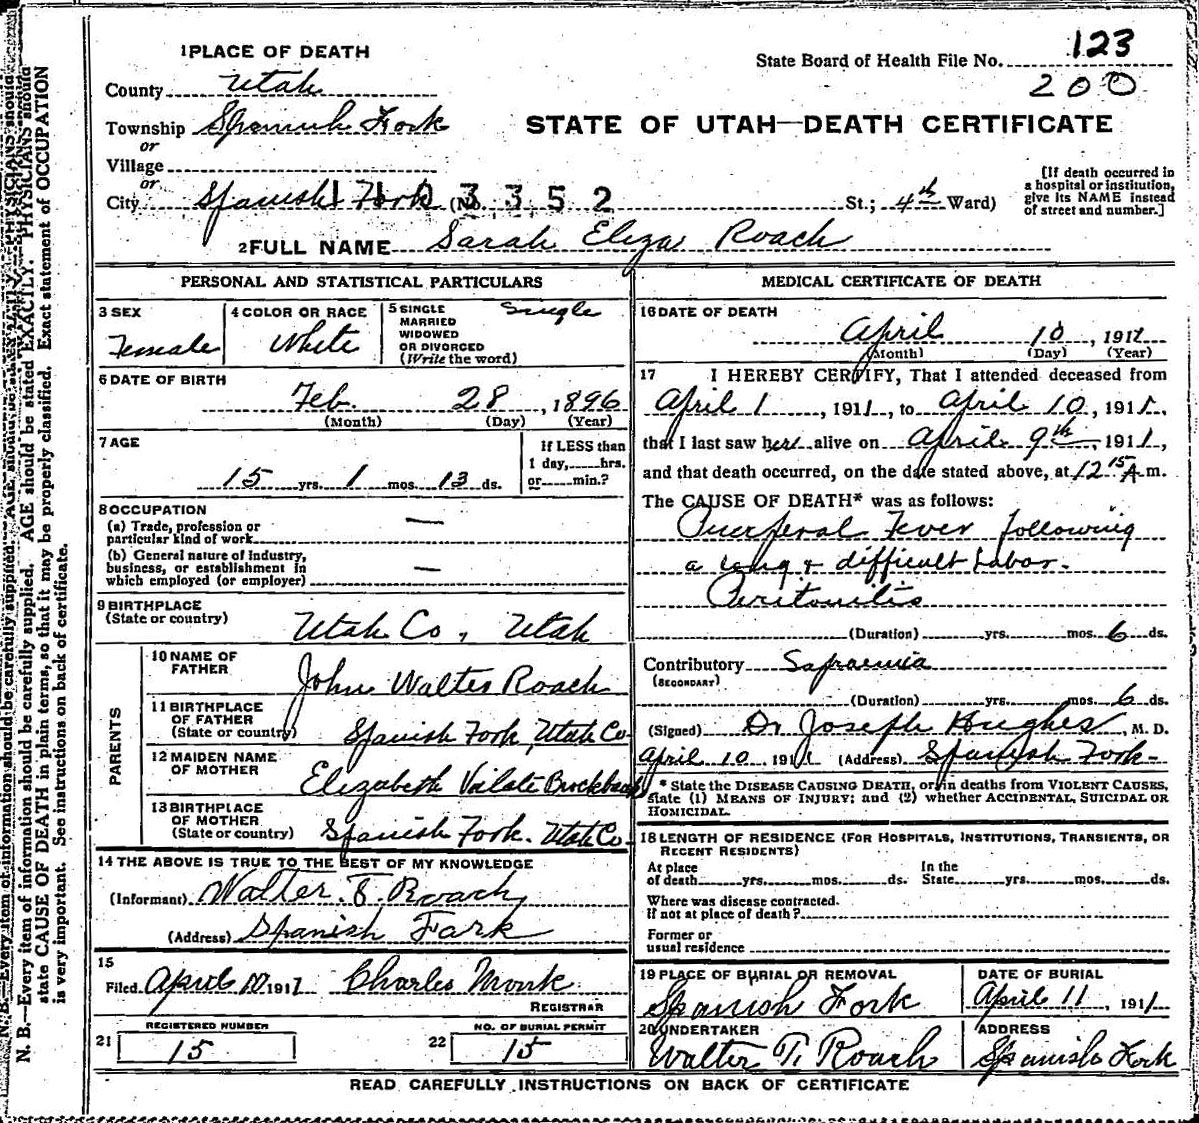 1 PLACE OF DEATH
County Utah
Township Spanish Fork
or
Village
or
City Spanish Fork (No. 1103352 St.; 4th Ward)
State Board of Health File No. 123
200
STATE OF UTAH—DEATH CERTIFICATE
[If death occurred in
a hospital or institution,
give its NAME instead
of street and number.]
2 FULL NAME Sarah Eliza Roach
PERSONAL AND STATISTICAL PARTICULARS
3 SEX
Female
4 COLOR OR RACE
White
5 SINGLE Single
MARRIED
WIDOWED
OR DIVORCED
(Write the word)
6 DATE OF BIRTH
Feb. 28, 1896
(Month) (Day) (Year)
7 AGE
15 yrs. 1 mos. 13 ds.
If LESS than
1 day, hrs.
or min.?
8 OCCUPATION
(a) Trade, profession or
particular kind of work —
(b) General nature of industry,
business, or establishment in
which employed (or employer) —
9 BIRTHPLACE
(State or country) Utah Co, Utah
PARENTS
10 NAME OF
FATHER John Walter Roach
11 BIRTHPLACE
OF FATHER
(State or country) Spanish Fork, Utah Co
12 MAIDEN NAME
OF MOTHER Elizabeth Vilate Brockbank
13 BIRTHPLACE
OF MOTHER
(State or country) Spanish Fork. Utah Co.
14 THE ABOVE IS TRUE TO THE BEST OF MY KNOWLEDGE
(Informant) Walter T. Roach
(Address) Spanish Fork
15
Filed April 10 1911 Charles Monk
REGISTRAR
REGISTERED NUMBER
21 15
NO. OF BURIAL PERMIT
22 15
MEDICAL CERTIFICATE OF DEATH
16 DATE OF DEATH
April 10, 1911
(Month) (Day) (Year)
17 I HEREBY CERTIFY, That I attended deceased from
April 1, 1911, to April 10, 1911,
that I last saw her alive on April 9th, 1911,
and that death occurred, on the date stated above, at 12 15 A m.
The CAUSE OF DEATH* was as follows:
Puerperal Fever following
a long & difficult Labor.
Peritonitis
(Duration) yrs. mos. 6 ds.
Contributory Sapraemia
(SECONDARY)
(Duration) yrs. mos. 6 ds.
(Signed) Dr Joseph Hughes, M. D.
April 10 1911 (Address) Spanish Fork-
* State the DISEASE CAUSING DEATH, or in deaths from VIOLENT CAUSES,
state (1) MEANS OF INJURY; and (2) whether ACCIDENTAL, SUICIDAL OR
HOMICIDAL.
18 LENGTH OF RESIDENCE (FOR HOSPITALS, INSTITUTIONS, TRANSIENTS, OR
RECENT RESIDENTS)
At place
of death yrs. mos. ds.
In the
State yrs. mos. ds.
Where was disease contracted.
If not at place of death?
Former or
usual residence
19 PLACE OF BURIAL OR REMOVAL
Spanish Fork
DATE OF BURIAL
April 11, 1911
20 UNDERTAKER
Walter T. Roach
ADDRESS
Spanish Fork
READ CAREFULLY INSTRUCTIONS ON BACK OF CERTIFICATE
N. B.—Every item of information should be carefully supplied. AGE should be stated EXACTLY. PHYSICIANS should
state CAUSE OF DEATH in plain terms, so that it may be properly classified. Exact statement of OCCUPATION
is very important. See instructions on back of certificate.